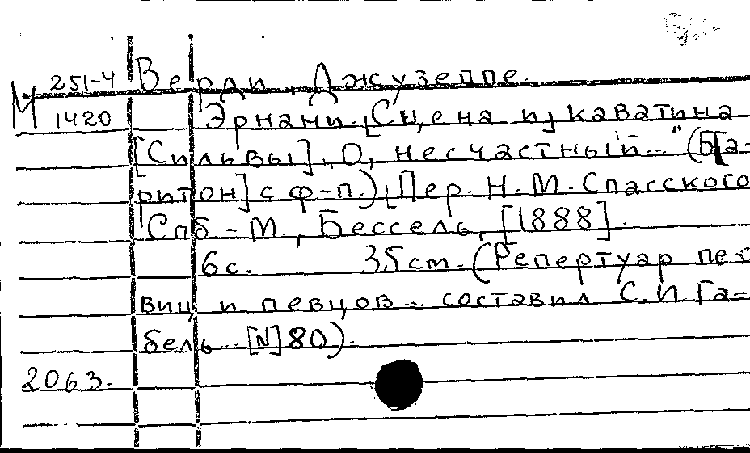 М 251-4 Верди, Джузеппе.
1420 Эрнани. [Сцена и каватина
[Сильвы], О, несчастный..." (Б[а-
ритон] с ф-п.), Пер. Н. М. Спасского
Спб - М., Бессель, [1888].
6с. 35 cm. (Репертуар пе
виц и певцов. составил С. И Га-
бель.. [N] 80).
2063.